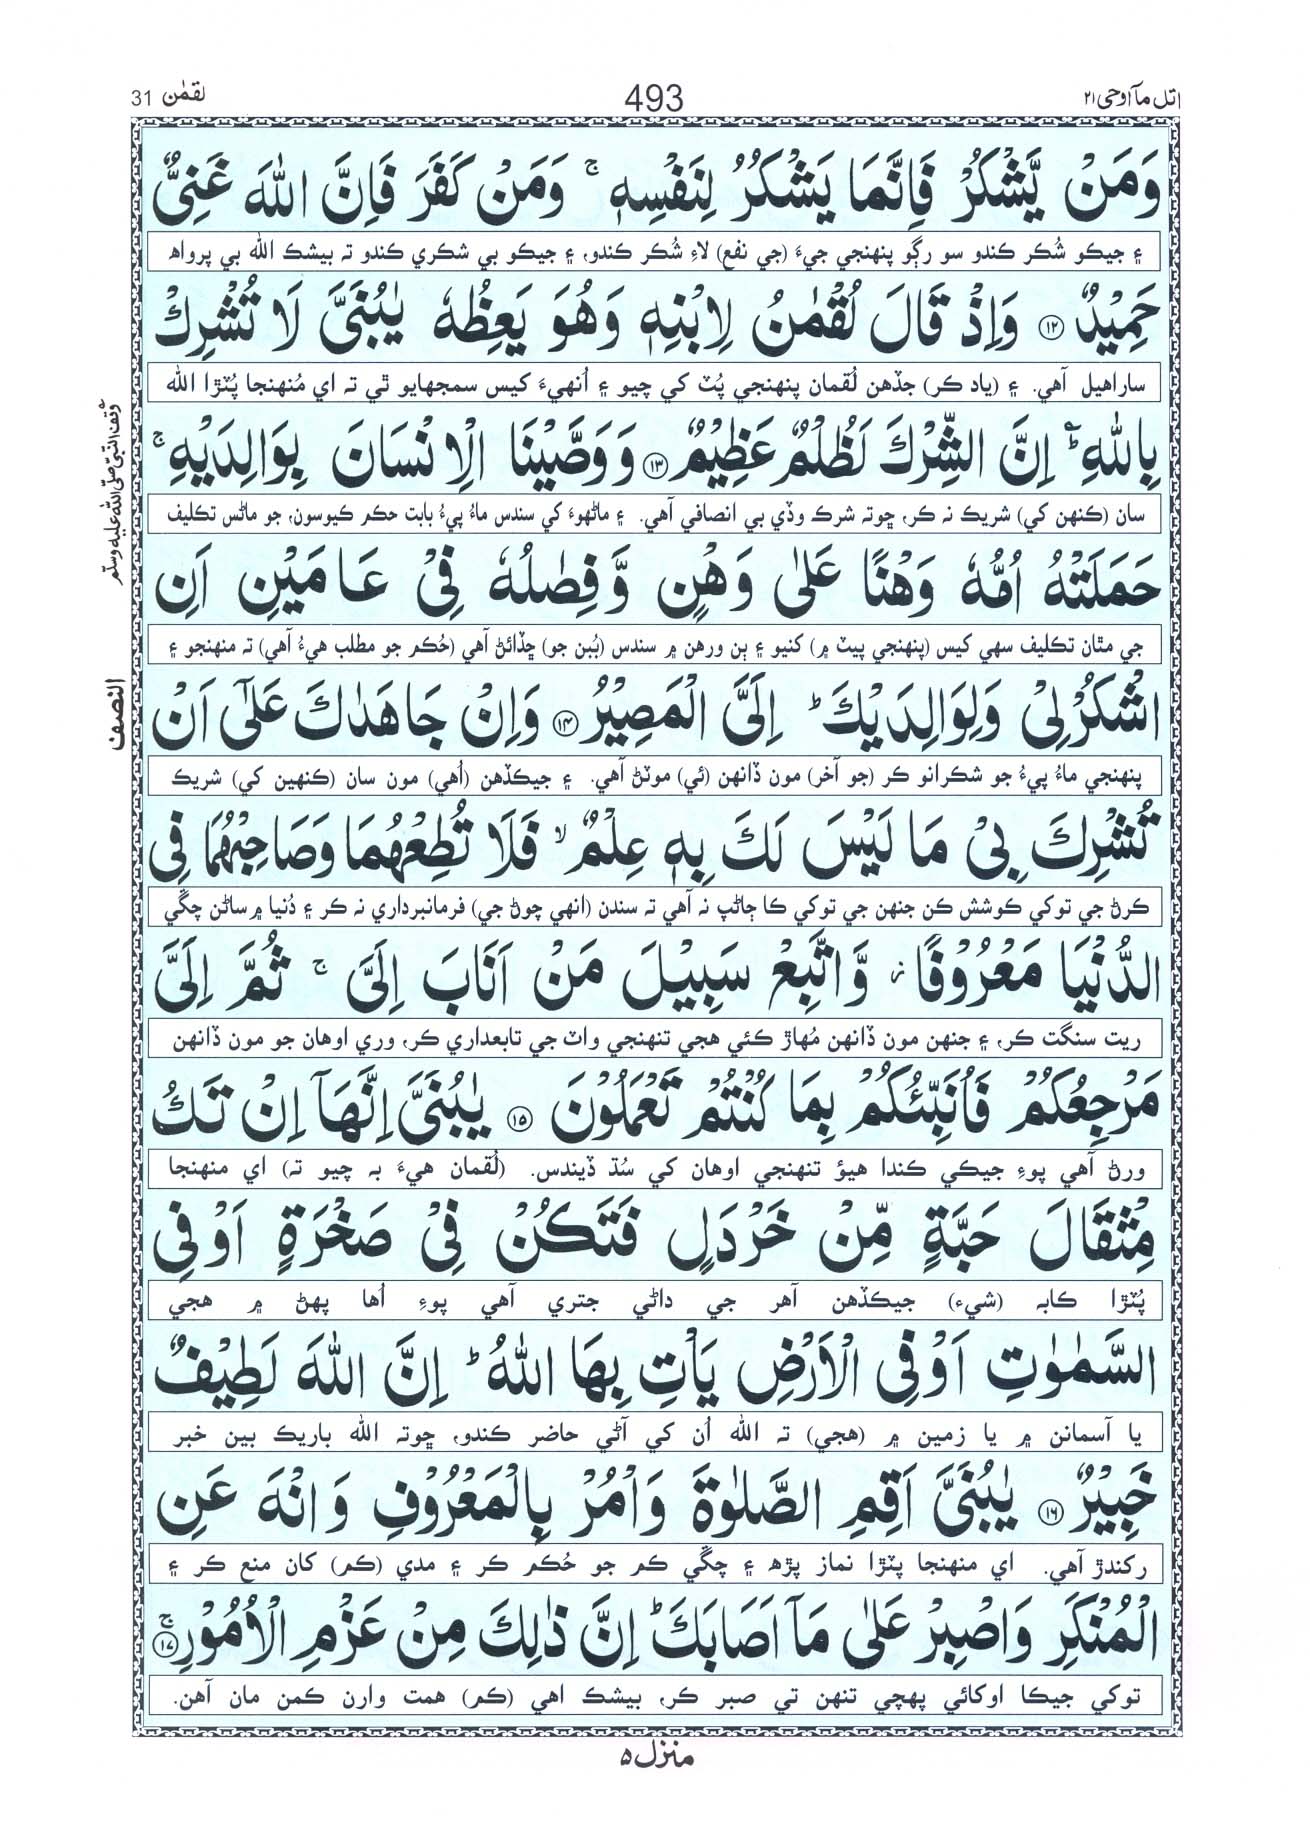 اتل مآ اوحی ۲۱
493
لقمٰن 31
وَمَنْ يَّشْكُرْ فَاِنَّمَا يَشْكُرُ لِنَفْسِهٖ ۚ وَمَنْ كَفَرَ فَاِنَّ اللّٰهَ غَنِىٌّ
۽ جيڪو شُڪر ڪندو سو رڳو پنھنجي جيءَ (جي نفع) لاءِ شُڪر ڪندو، ۽ جيڪو بي شڪري ڪندو تہ بيشڪ الله بي پرواھ
حَمِيْدٌ ۝۱۲ وَاِذْ قَالَ لُقْمٰنُ لِابْنِهٖ وَهُوَ يَعِظُهٗ يٰبُنَىَّ لَا تُشْرِكْ
ساراھيل آھي. ۽ (ياد ڪر) جڏھن لُقمان پنھنجي پُٽ کي چيو ۽ اُنھيءَ کيس سمجھايو ٿي تہ اي مُنھنجا پُٽڙا الله
بِاللّٰهِ ؕ اِنَّ الشِّرْكَ لَظُلْمٌ عَظِيْمٌ ۝۱۳ وَوَصَّيْنَا الْاِنْسَانَ بِوَالِدَيْهِ ۚ
سان (ڪنھن کي) شريڪ نہ ڪر، ڇوتہ شرڪ وڏي بي انصافي آھي. ۽ ماڻھوءَ کي سندس ماءُ پيءُ بابت حڪم ڪيوسون، جو ماڻس تڪليف
وقف النبی صلی الله علیه وسلم
حَمَلَتْهُ اُمُّهٗ وَهْنًا عَلٰى وَهْنٍ وَّفِصٰلُهٗ فِىْ عَامَيْنِ اَنِ
جي مٿان تڪليف سھي کيس (پنھنجي پيٽ ۾) کنيو ۽ ٻن ورھن ۾ سندس (ٻُبن جو) ڇڏائڻ آھي (حُڪم جو مطلب ھيءُ آھي) تہ منھنجو ۽
اشْكُرْ لِىْ وَلِوَالِدَيْكَ ؕ اِلَىَّ الْمَصِيْرُ ۝۱۴ وَاِنْ جَاهَدٰكَ عَلٰٓى اَنْ
النصف
پنھنجي ماءُ پيءُ جو شڪرانو ڪر (جو آخر) مون ڏانھن (ئي) موٽڻ آھي. ۽ جيڪڏھن (اُھي) مون سان (ڪنھين کي) شريڪ
تُشْرِكَ بِىْ مَا لَيْسَ لَكَ بِهٖ عِلْمٌ ۙ فَلَا تُطِعْهُمَا وَصَاحِبْهُمَا فِى
ڪرڻ جي توکي ڪوشش ڪن جنھن جي توکي ڪا ڄاڻپ نہ آھي تہ سندن (انھي چوڻ جي) فرمانبرداري نہ ڪر ۽ دُنيا ۾ ساڻن چڱي
الدُّنْيَا مَعْرُوْفًا ؗ وَّاتَّبِعْ سَبِيْلَ مَنْ اَنَابَ اِلَىَّ ۚ ثُمَّ اِلَىَّ
ريت سنگت ڪر، ۽ جنھن مون ڏانھن مُھاڙ ڪئي ھجي تنھنجي واٽ جي تابعداري ڪر، وري اوھان جو مون ڏانھن
مَرْجِعُكُمْ فَاُنَبِّئُكُمْ بِمَا كُنْتُمْ تَعْمَلُوْنَ ۝۱۵ يٰبُنَىَّ اِنَّهَآ اِنْ تَكُ
ورڻ آھي پوءِ جيڪي ڪندا ھيؤ تنھنجي اوھان کي سُڌ ڏيندس. (لُقمان ھيءَ بہ چيو تہ) اي منھنجا
مِثْقَالَ حَبَّةٍ مِّنْ خَرْدَلٍ فَتَكُنْ فِىْ صَخْرَةٍ اَوْ فِى
پُٽڙا ڪابہ (شيءِ) جيڪڏھن آھر جي داڻي جتري آھي پوءِ اُھا پھڻ ۾ ھجي
السَّمٰوٰتِ اَوْ فِى الْاَرْضِ يَاْتِ بِهَا اللّٰهُ ؕ اِنَّ اللّٰهَ لَطِيْفٌ
يا آسمانن ۾ يا زمين ۾ (ھجي) تہ الله اُن کي آڻي حاضر ڪندو، ڇوتہ الله باريڪ بين خبر
خَبِيْرٌ ۝۱۶ يٰبُنَىَّ اَقِمِ الصَّلٰوةَ وَاْمُرْ بِالْمَعْرُوْفِ وَانْهَ عَنِ
رکندڙ آھي. اي منھنجا پٽڙا نماز پڙھ ۽ چڱي ڪم جو حُڪم ڪر ۽ مدي (ڪم) کان منع ڪر ۽
الْمُنْكَرِ وَاصْبِرْ عَلٰى مَآ اَصَابَكَ ؕ اِنَّ ذٰلِكَ مِنْ عَزْمِ الْاُمُوْرِ ۚ۝۱۷
توکي جيڪا اوکائي پھچي تنھن تي صبر ڪر، بيشڪ اھي (ڪم) ھمت وارن ڪمن مان آھن.
منزل ۵